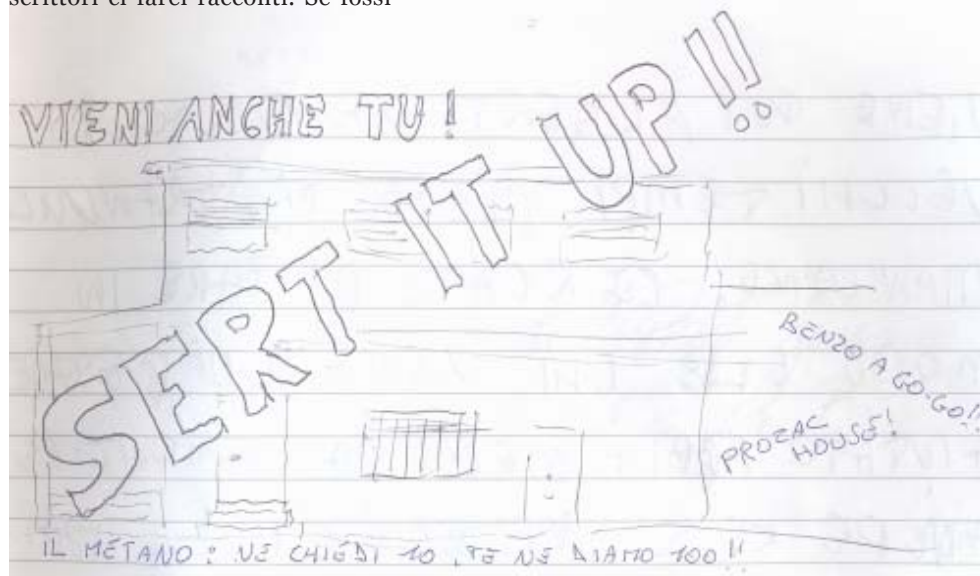 scrittori ci farei racconti. Se fossi
VIENI ANCHE TU!
SERT IT UP!!
BENZO A GO-GO!!
PROZAC
HOUSE!
IL METANO: NE CHIEDI 10, TE NE DIAMO 100!!